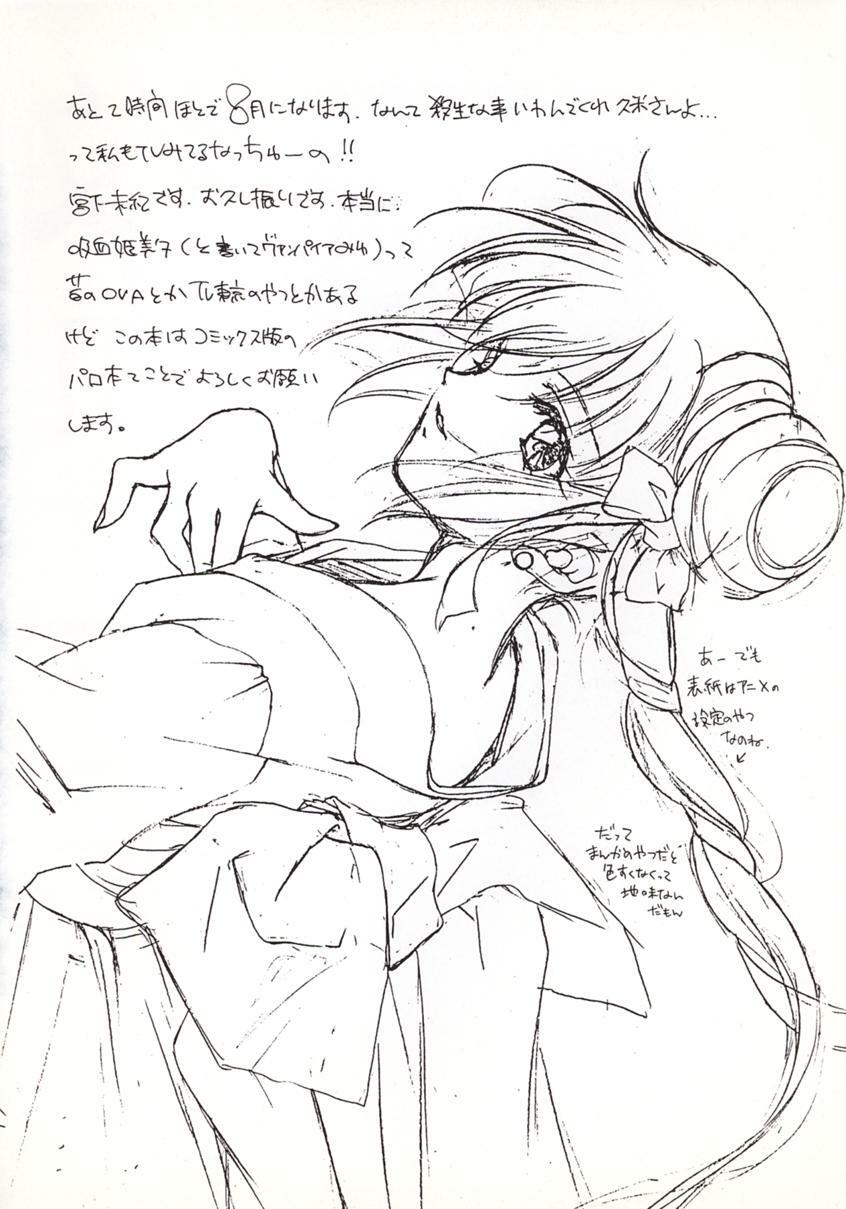 あと7時間ほどで8月になります. なんて殺生な事いわんでくれ久米さんよ…
って私もTVみてるなっちゅーの!!
宮下未紀です. お久し振りです. 本当に.
吸血姫美夕(と書いてヴァンパイアみゆ)って
昔のOVAとかTV東京のやつとかある
けど この本はコミックス版の
パロ本てことでよろしくお願い
します。
あーでも
表紙はアニメの
設定のやつ
なのね.
だって
まんがのやつだと
色すくなくって
地味なん
だもん